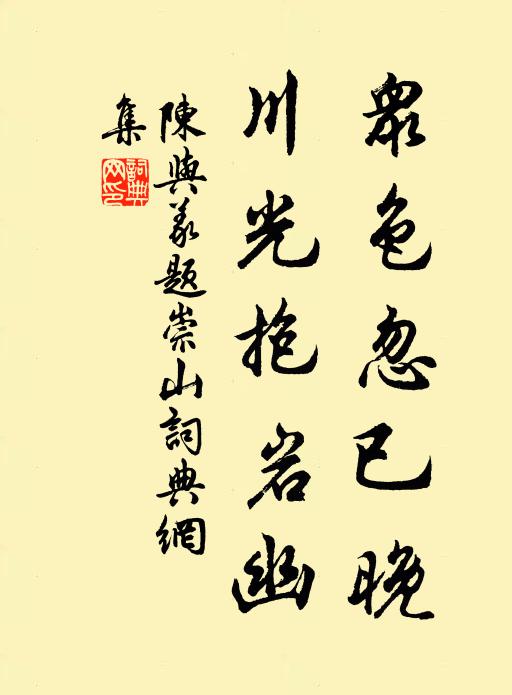 眾色忽已晚
川光抱岩幽
陳與義題崇山詞典網
集
詞典
网印